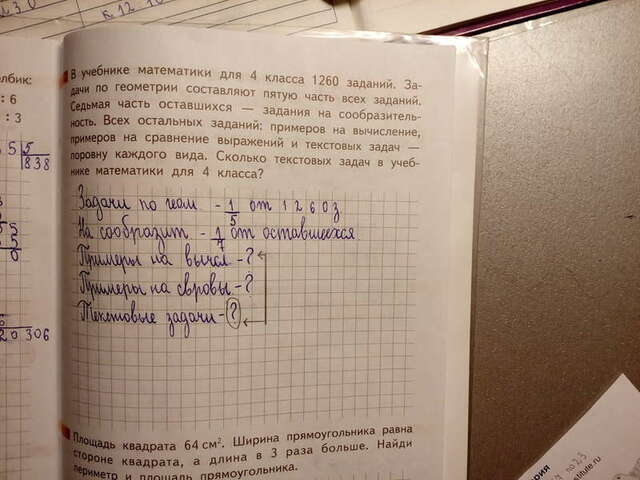 к. 12 10
елбик:
: 6
: 3
5 5
838
20306
В учебнике математики для 4 класса 1260 заданий. За-
дачи по геометрии составляют пятую часть всех заданий.
Седьмая часть оставшихся — задания на сообразитель-
ность. Всех остальных заданий: примеров на вычисление,
примеров на сравнение выражений и текстовых задач —
поровну каждого вида. Сколько текстовых задач в учеб-
нике математики для 4 класса?
Задачи по геом - 1/5 от 1260 з
На сообразит - 1/7 от оставшихся
Примеры на вычисл - ?
Примеры на - ?
Текстовые задачи - ?
Площадь квадрата 64 см². Ширина прямоугольника равна
стороне квадрата, а длина в 3 раза больше. Найди
периметр и площадь прямоугольника.